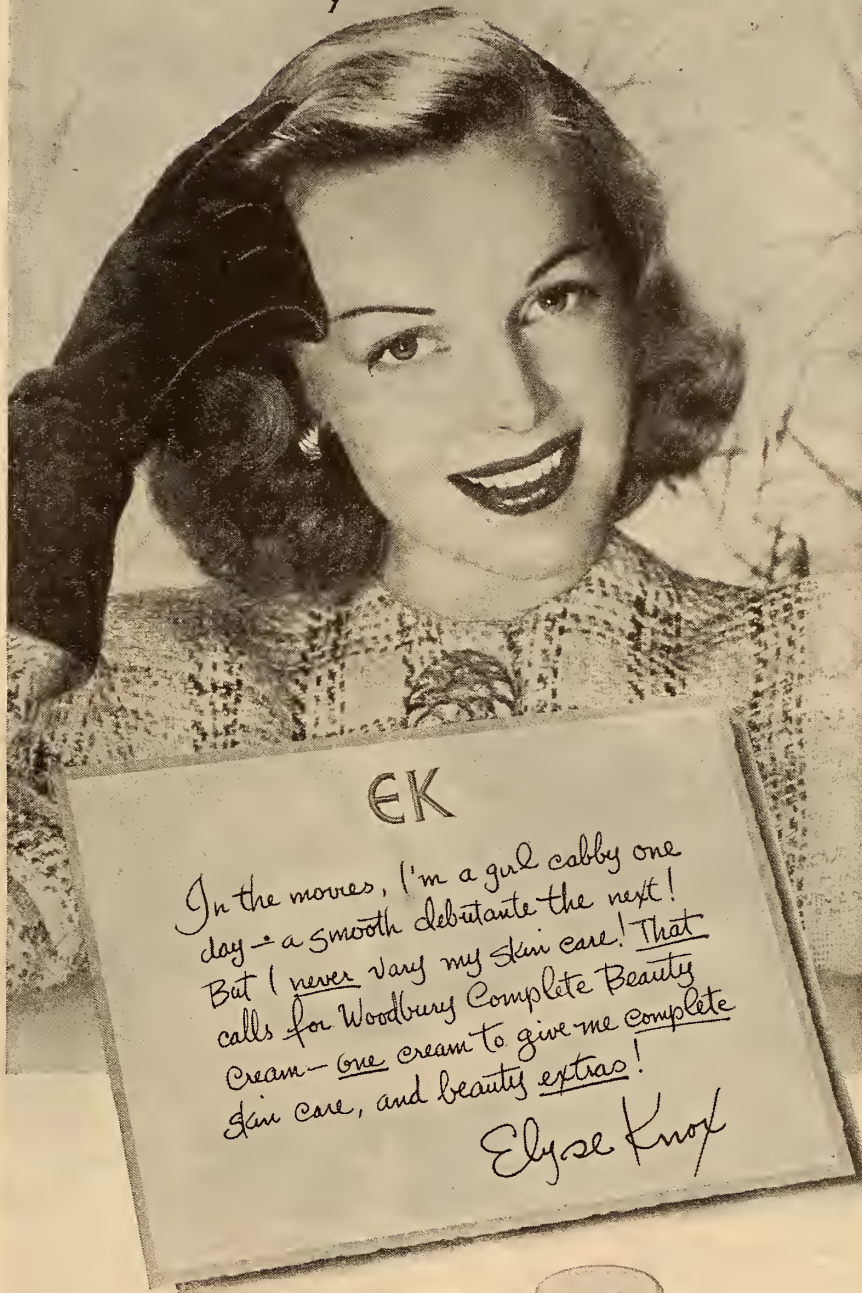 EK
In the movies, I'm a girl cabby one
day - a smooth debutante the next!
But I never vary my skin care! That
calls for Woodbury Complete Beauty
Cream - one cream to give me complete
skin care, and beauty extras!
Elyse Knox